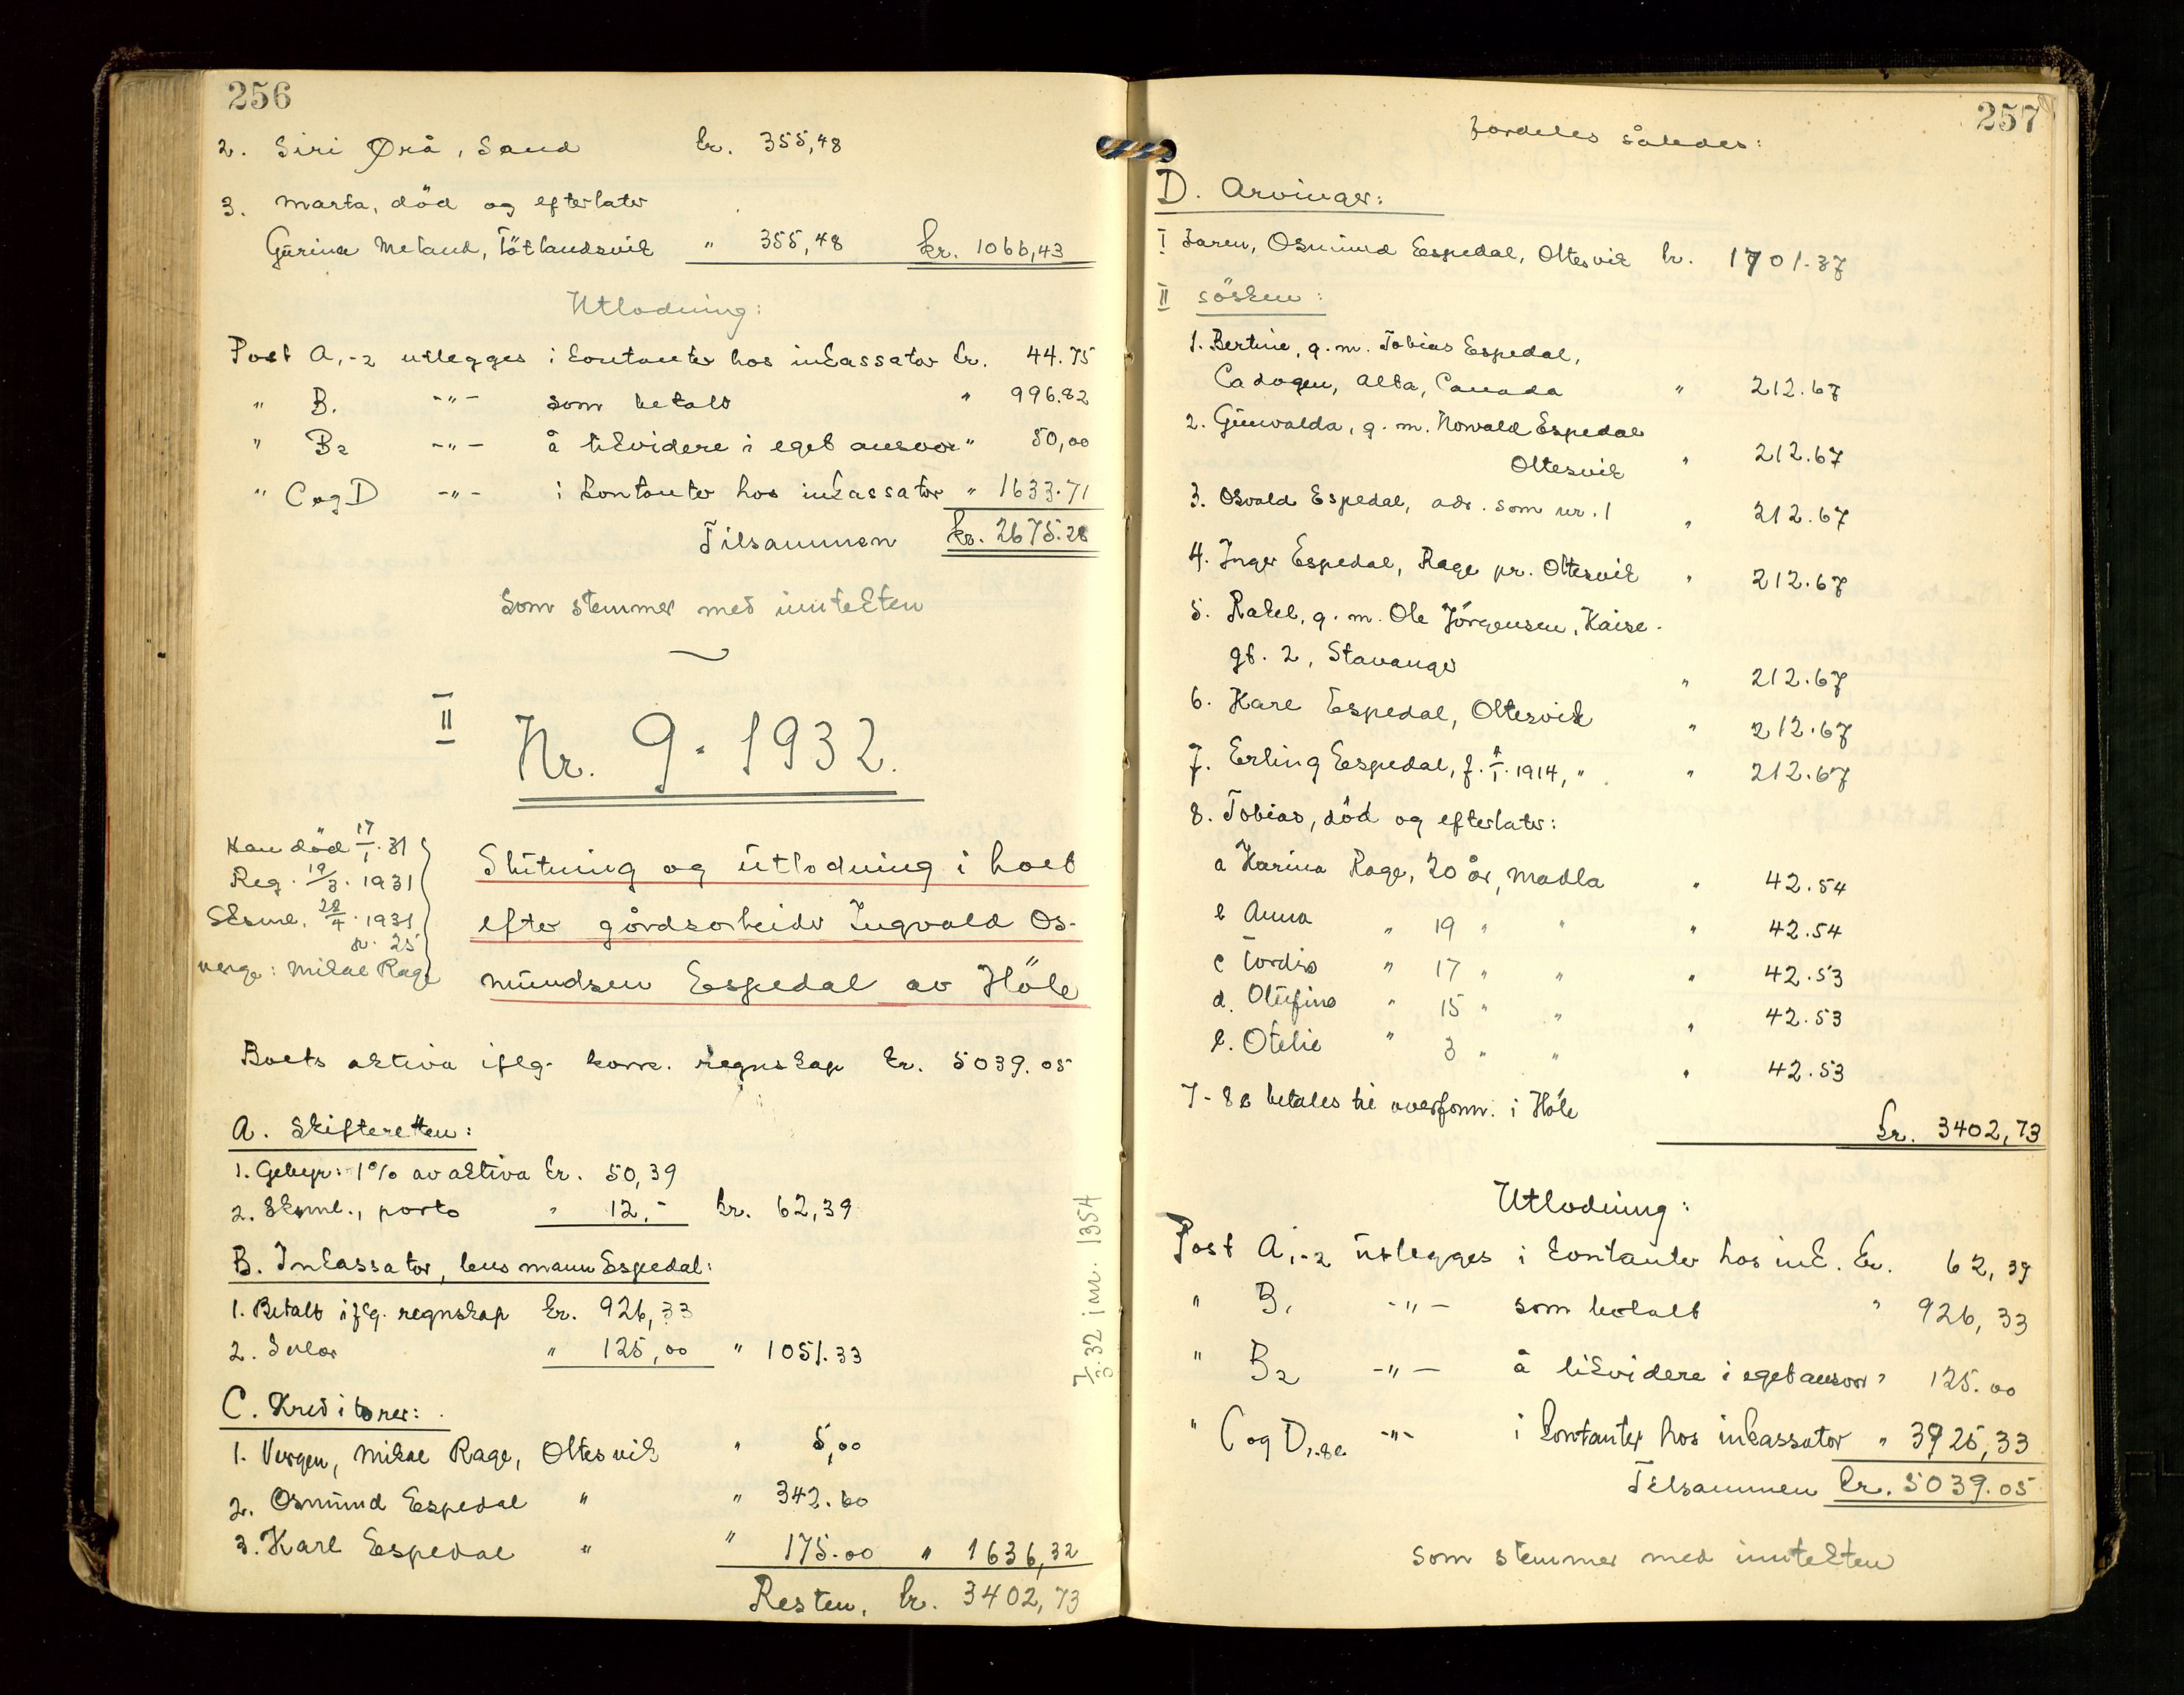 256
2. Siri Ørå, Sand kr. 355,48
3. Marta, död og efterlater
Gurina Meland, Tötlandsvik " 355,48 kr. 1066,43
Utlodning:
Post A,-2 utlegges i kontanter hos inkassator kr. 44.75
" B. -"- som betalt " 996.82
" B2 -"- å likvidere i eget ansvar " 50,00
" C og D -"- i kontanter hos inkassator " 1633.71
Tilsammen kr. 2675.28
Som stemmer med inntekten
II
Nr. 9 - 1932.
Han död 17/1.31
Reg. 19/3. 1931
Sksml. 28/4. 1931
nr. 25
verge: Mikal Rage
Slutning og utlodning i boet
efter gårdsarbeider Ingvald Os-
mundsen Espedal av Höle
Boets aktiva iflg. korr. regnskap kr. 5039.05
A. Skifteretten:
1. Gebyr: 1% av aktiva kr. 50,39
2. Sksml., porto " 12,- kr. 62,39
B. Inkassator, lensmann Espedal:
1. Betalt iflg. regnskap kr. 926,33
2. Salær " 125,00 " 1051.33
C. Kreditorer:
1. Vergen, Mikal Rage, Oltesvik " 5,00
2. Osmund Espedal " " 342.60
3. Karl Espedal " " 175.00 " 1636,32
Resten, kr. 3402,73
7/3.32 inn. 1354
257
Fordeles således:
D. Arvinger:
I Faren, Osmund Espedal, Oltesvik kr. 1701.37
II Sösken:
1. Bertine, g.m. Tobias Espedal,
Cadogen, Alta, Canada " 212.67
2. Gunvalda, g.m. Norvald Espedal
Oltesvik " 212.67
3. Osvald Espedal, adr. som nr. 1 " 212.67
4. Inger Espedal, Rage pr. Oltesvik " 212.67
5. Rakel, g.m. Ole Jörgensen, Kaise-
gt. 2, Stavanger " 212.67
6. Karl Espedal, Oltesvik " 212.67
7. Erling Espedal, f. 1914, " " 212.67
8. Tobias, död og efterlater:
a Karina Rage, 20 år, Madla " 42.54
b Anna " 19 " " " 42.54
c Tordis " 17 " " " 42.53
d. Olufina " 15 " " " 42.53
e. Otelie " 3 " " " 42.53
7-8e betales til overform. i Höle
kr. 3402,73
Utlodning:
Post A,-2 utlegges i kontanter hos ink. kr. 62,39
" B, -"- som betalt " 926,33
" B2 -"- å likvidere i eget ansvar " 125.00
" C og D,-8e -"- i kontanter hos inkassator " 3925,33
Tilsammen kr. 5039.05
som stemmer med inntekten